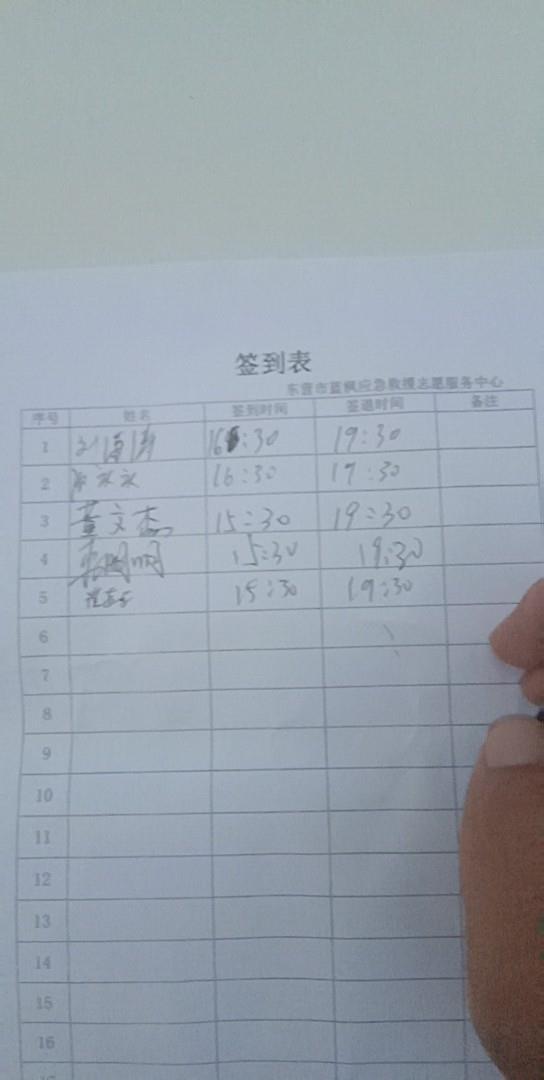 签到表
东营市蓝枫应急救援志愿服务中心
序号 姓名 签到时间 签退时间 备注
1 刘海涛 16:30 19:30
2 16:30 17:30
3 董文杰 15:30 19:30
4 15:30 19:30
5 15:30 19:30
6
7
8
9
10
11
12
13
14
15
16